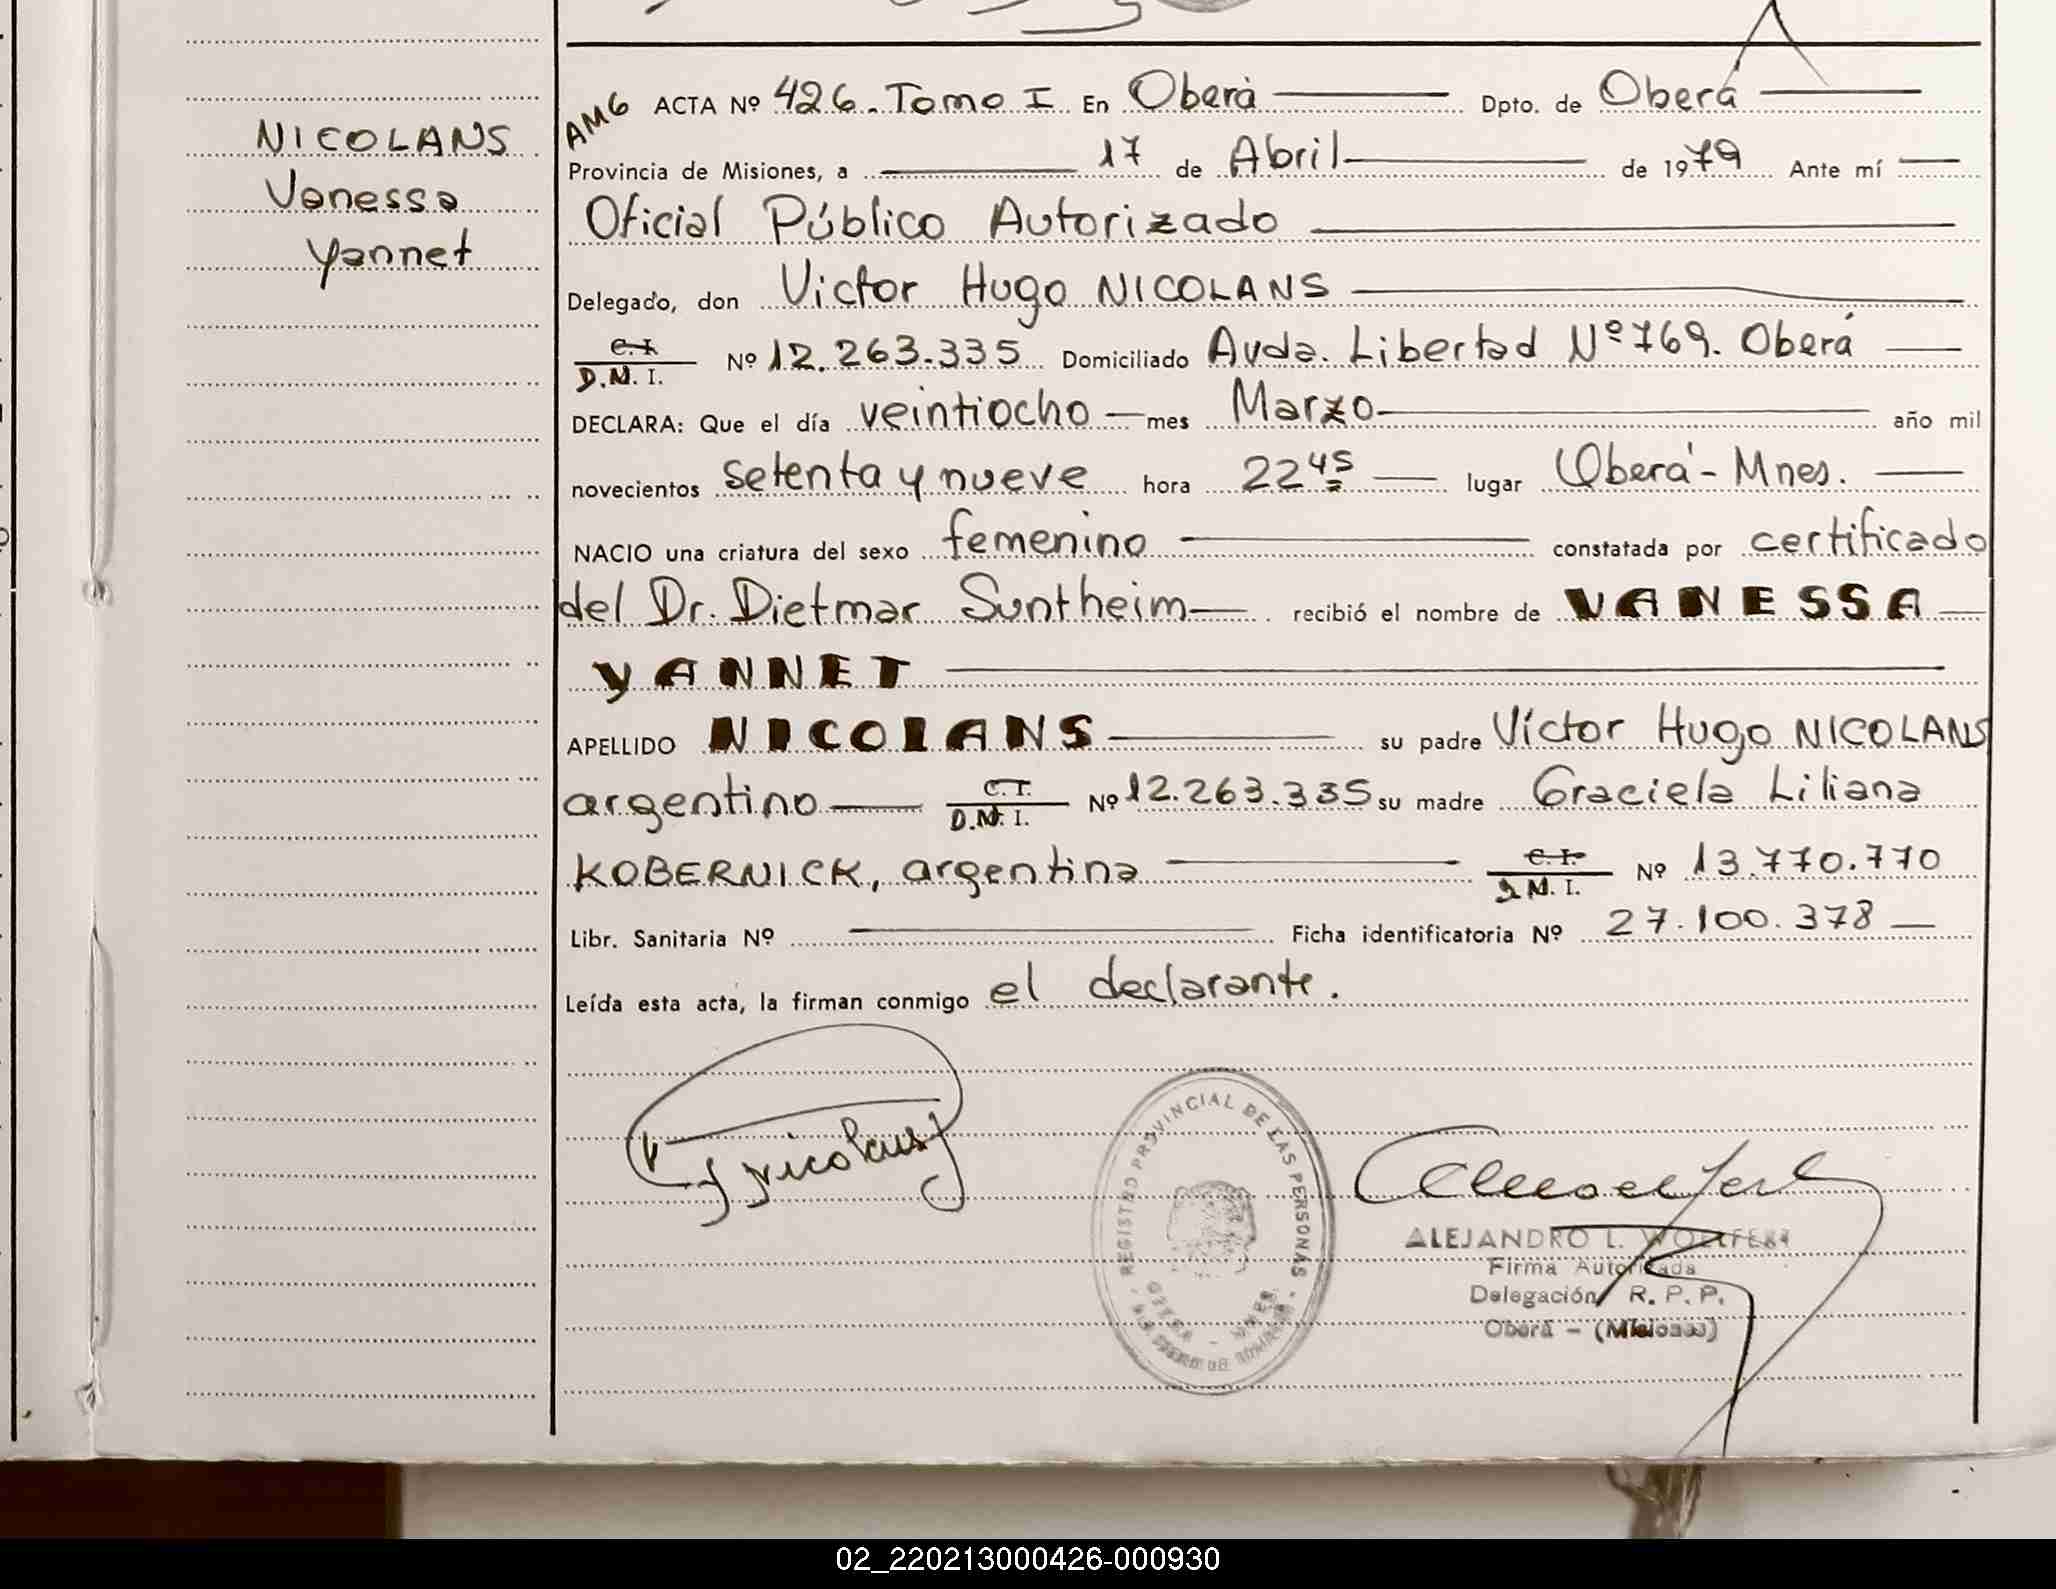 NICOLANS
Vanessa
Yannet
AM6 ACTA Nº 426. Tomo I En Oberá Dpto. de Oberá
Provincia de Misiones, a 17 de Abril de 1979 Ante mí
Oficial Público Autorizado
Delegado, don Victor Hugo NICOLANS
C.I. D.N.I. Nº 12.263.335 Domiciliado Avda. Libertad Nº 769. Oberá
DECLARA: Que el día veintiocho mes Marzo año mil
novecientos setenta y nueve hora 22 45 lugar Oberá - Mnes.
NACIO una criatura del sexo femenino constatada por certificado
del Dr. Dietmar Suntheim recibió el nombre de VANESSA
YANNET
APELLIDO NICOLANS su padre Víctor Hugo NICOLANS
argentino C.I. D.N.I. Nº 12.263.335 su madre Graciela Liliana
KOBERNICK, argentina C.I. D.N.I. Nº 13.770.770
Libr. Sanitaria Nº Ficha identificatoria Nº 27.100.378
Leída esta acta, la firman conmigo el declarante.
REGISTRO PROVINCIAL DE LAS PERSONAS
ALEJANDRO L.
Firma Autorizada
Delegación R. P. P.
Oberá - (Misiones)
02_220213000426-000930